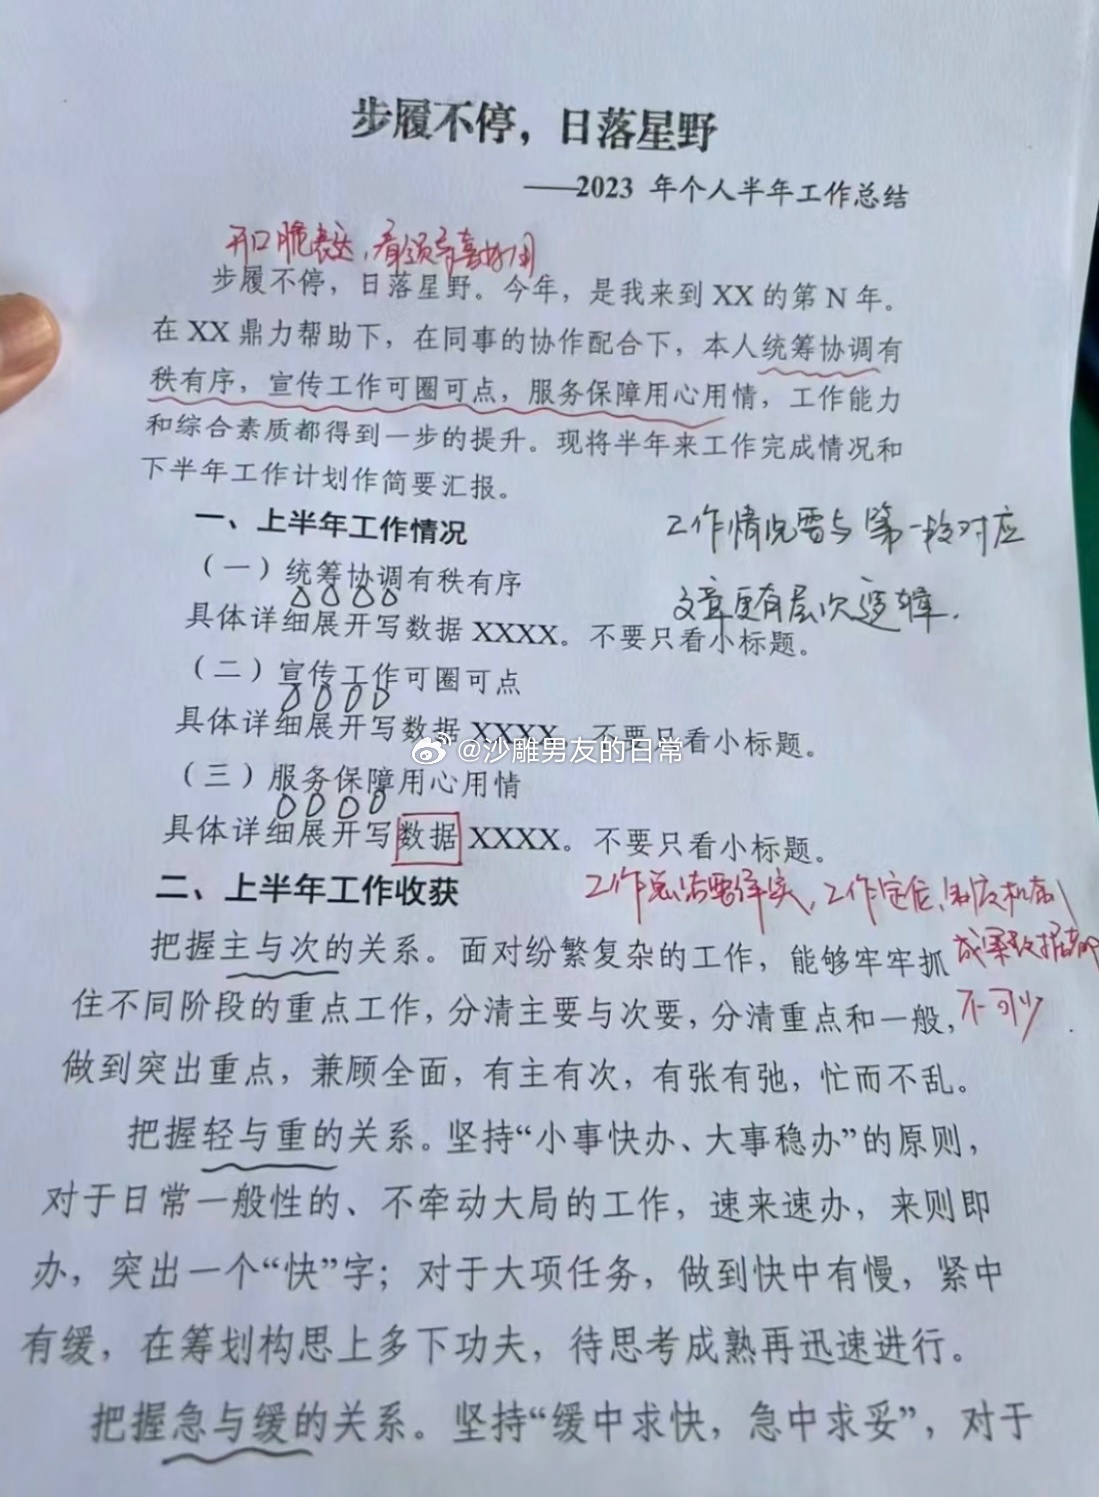 步履不停，日落星野
——2023 年个人半年工作总结
开口脆表达，看领导喜好用
步履不停，日落星野。今年，是我来到 XX 的第 N 年。
在 XX 鼎力帮助下，在同事的协作配合下，本人统筹协调有
秩有序，宣传工作可圈可点，服务保障用心用情，工作能力
和综合素质都得到一步的提升。现将半年来工作完成情况和
下半年工作计划作简要汇报。
一、上半年工作情况
工作情况需与第一段对应
（一）统筹协调有秩有序
文章更有层次逻辑.
具体详细展开写数据 XXXX。不要只看小标题。
（二）宣传工作可圈可点
具体详细展开写数据 XXXX。不要只看小标题。
@沙雕男友的日常
（三）服务保障用心用情
具体详细展开写数据 XXXX。不要只看小标题。
二、上半年工作收获
工作总结要详实，工作定位、制度机制
成果数据都
不可少
把握主与次的关系。面对纷繁复杂的工作，能够牢牢抓
住不同阶段的重点工作，分清主要与次要，分清重点和一般，
做到突出重点，兼顾全面，有主有次，有张有弛，忙而不乱。
把握轻与重的关系。坚持“小事快办、大事稳办”的原则，
对于日常一般性的、不牵动大局的工作，速来速办，来则即
办，突出一个“快”字；对于大项任务，做到快中有慢，紧中
有缓，在筹划构思上多下功夫，待思考成熟再迅速进行。
把握急与缓的关系。坚持“缓中求快，急中求妥”，对于